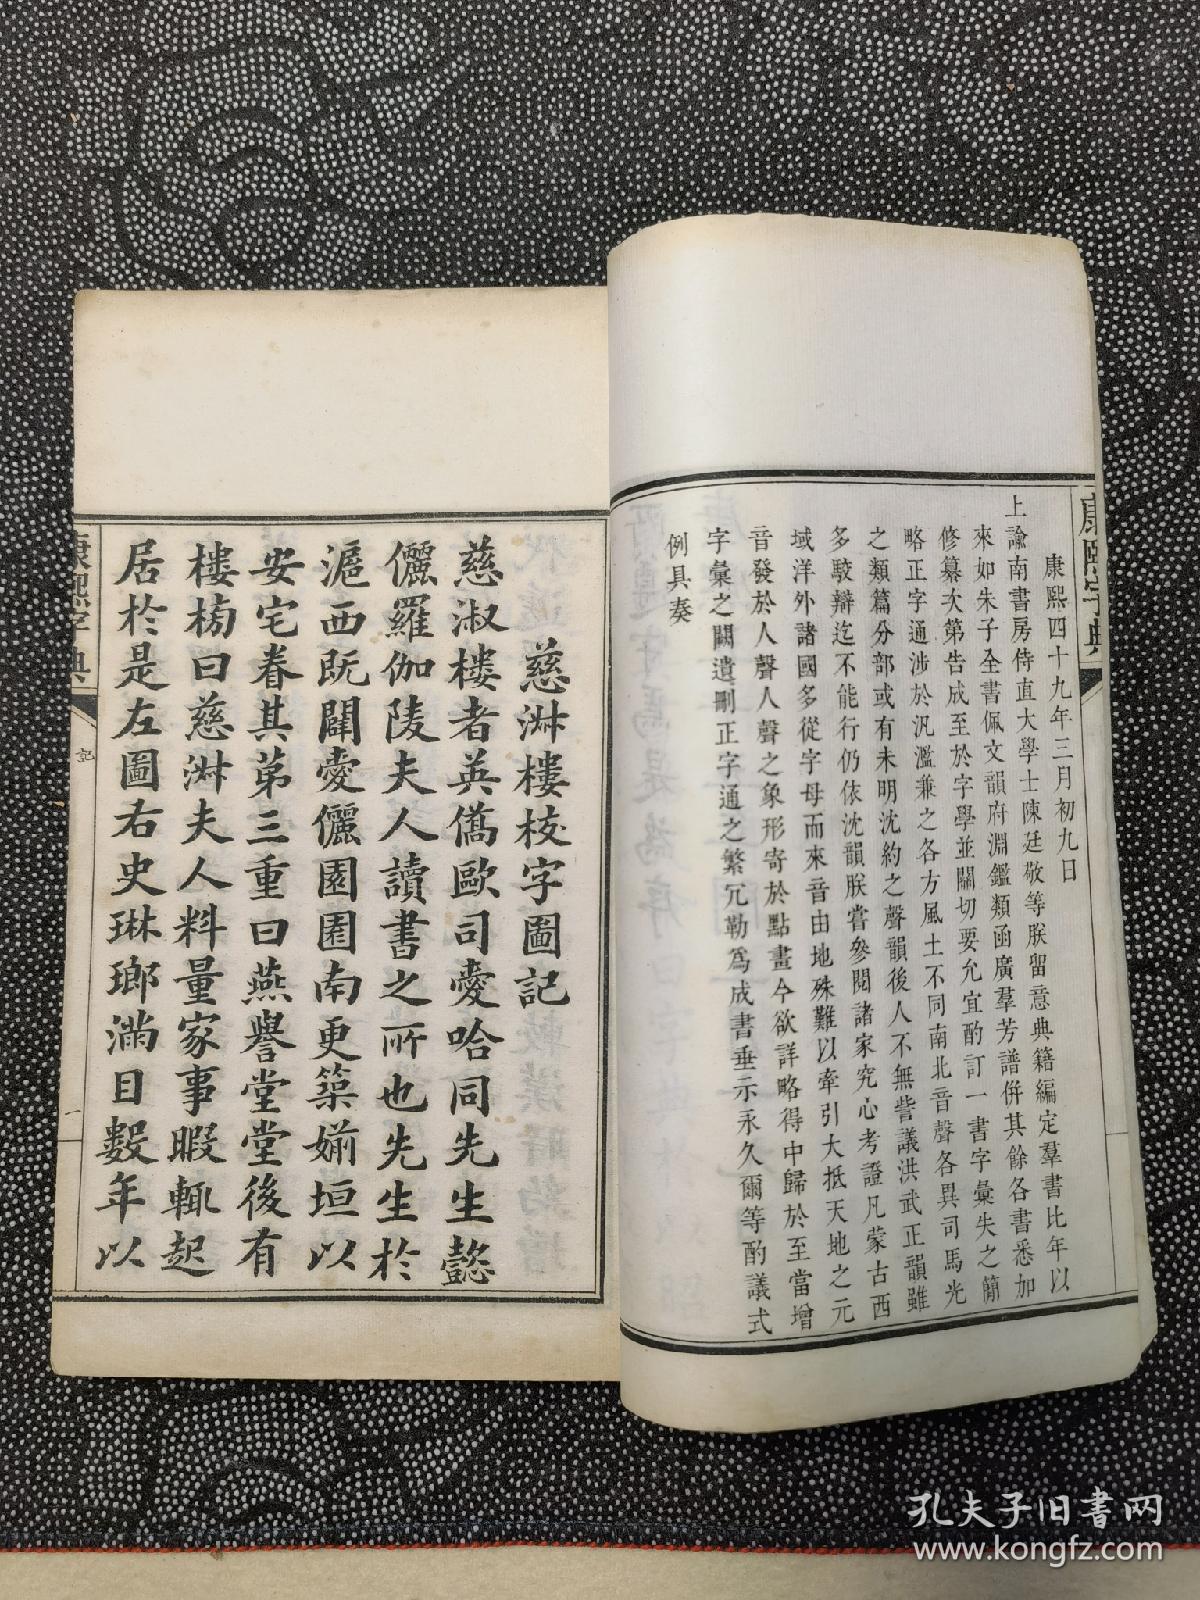 康熙字典
康熙四十九年三月初九日
上諭南書房侍直大學士陳廷敬等朕留意典籍編定羣書比年以
來如朱子全書佩文韻府淵鑑類函廣羣芳譜併其餘各書悉加
修纂次第告成至於字學並關切要允宜酌訂一書字彙失之簡
略正字通涉於汎濫兼之各方風土不同南北音聲各異司馬光
之類篇分部或有未明沈約之聲韻後人不無訾議洪武正韻雖
多駮辯迄不能行仍依沈韻朕嘗參閱諸家究心考證凡蒙古西
域洋外諸國多從字母而來音由地殊難以牽引大抵天地之元
音發於人聲人聲之象形寄於點畫今欲詳略得中歸於至當增
字彙之闕遺刪正字通之繁冗勒爲成書垂示永久爾等酌議式
例具奏
慈淑樓校字圖記
慈淑樓者英儒歐司愛哈同先生懿
儷羅伽陵夫人讀書之所也先生於
滬西旣闢愛儷園園南更築婣垣以
安宅眷其第三重曰燕譽堂堂後有
樓榜曰慈淑夫人料量家事暇輒起
居於是左圖右史琳瑯滿目數年以
康熙字典
記
一
孔夫子旧書网
www.kongfz.com